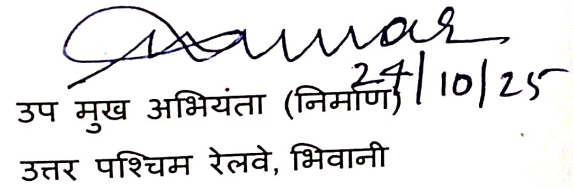 24/10/25
उप मुख अभियंता (निर्माण)
उत्तर पश्चिम रेलवे, भिवानी